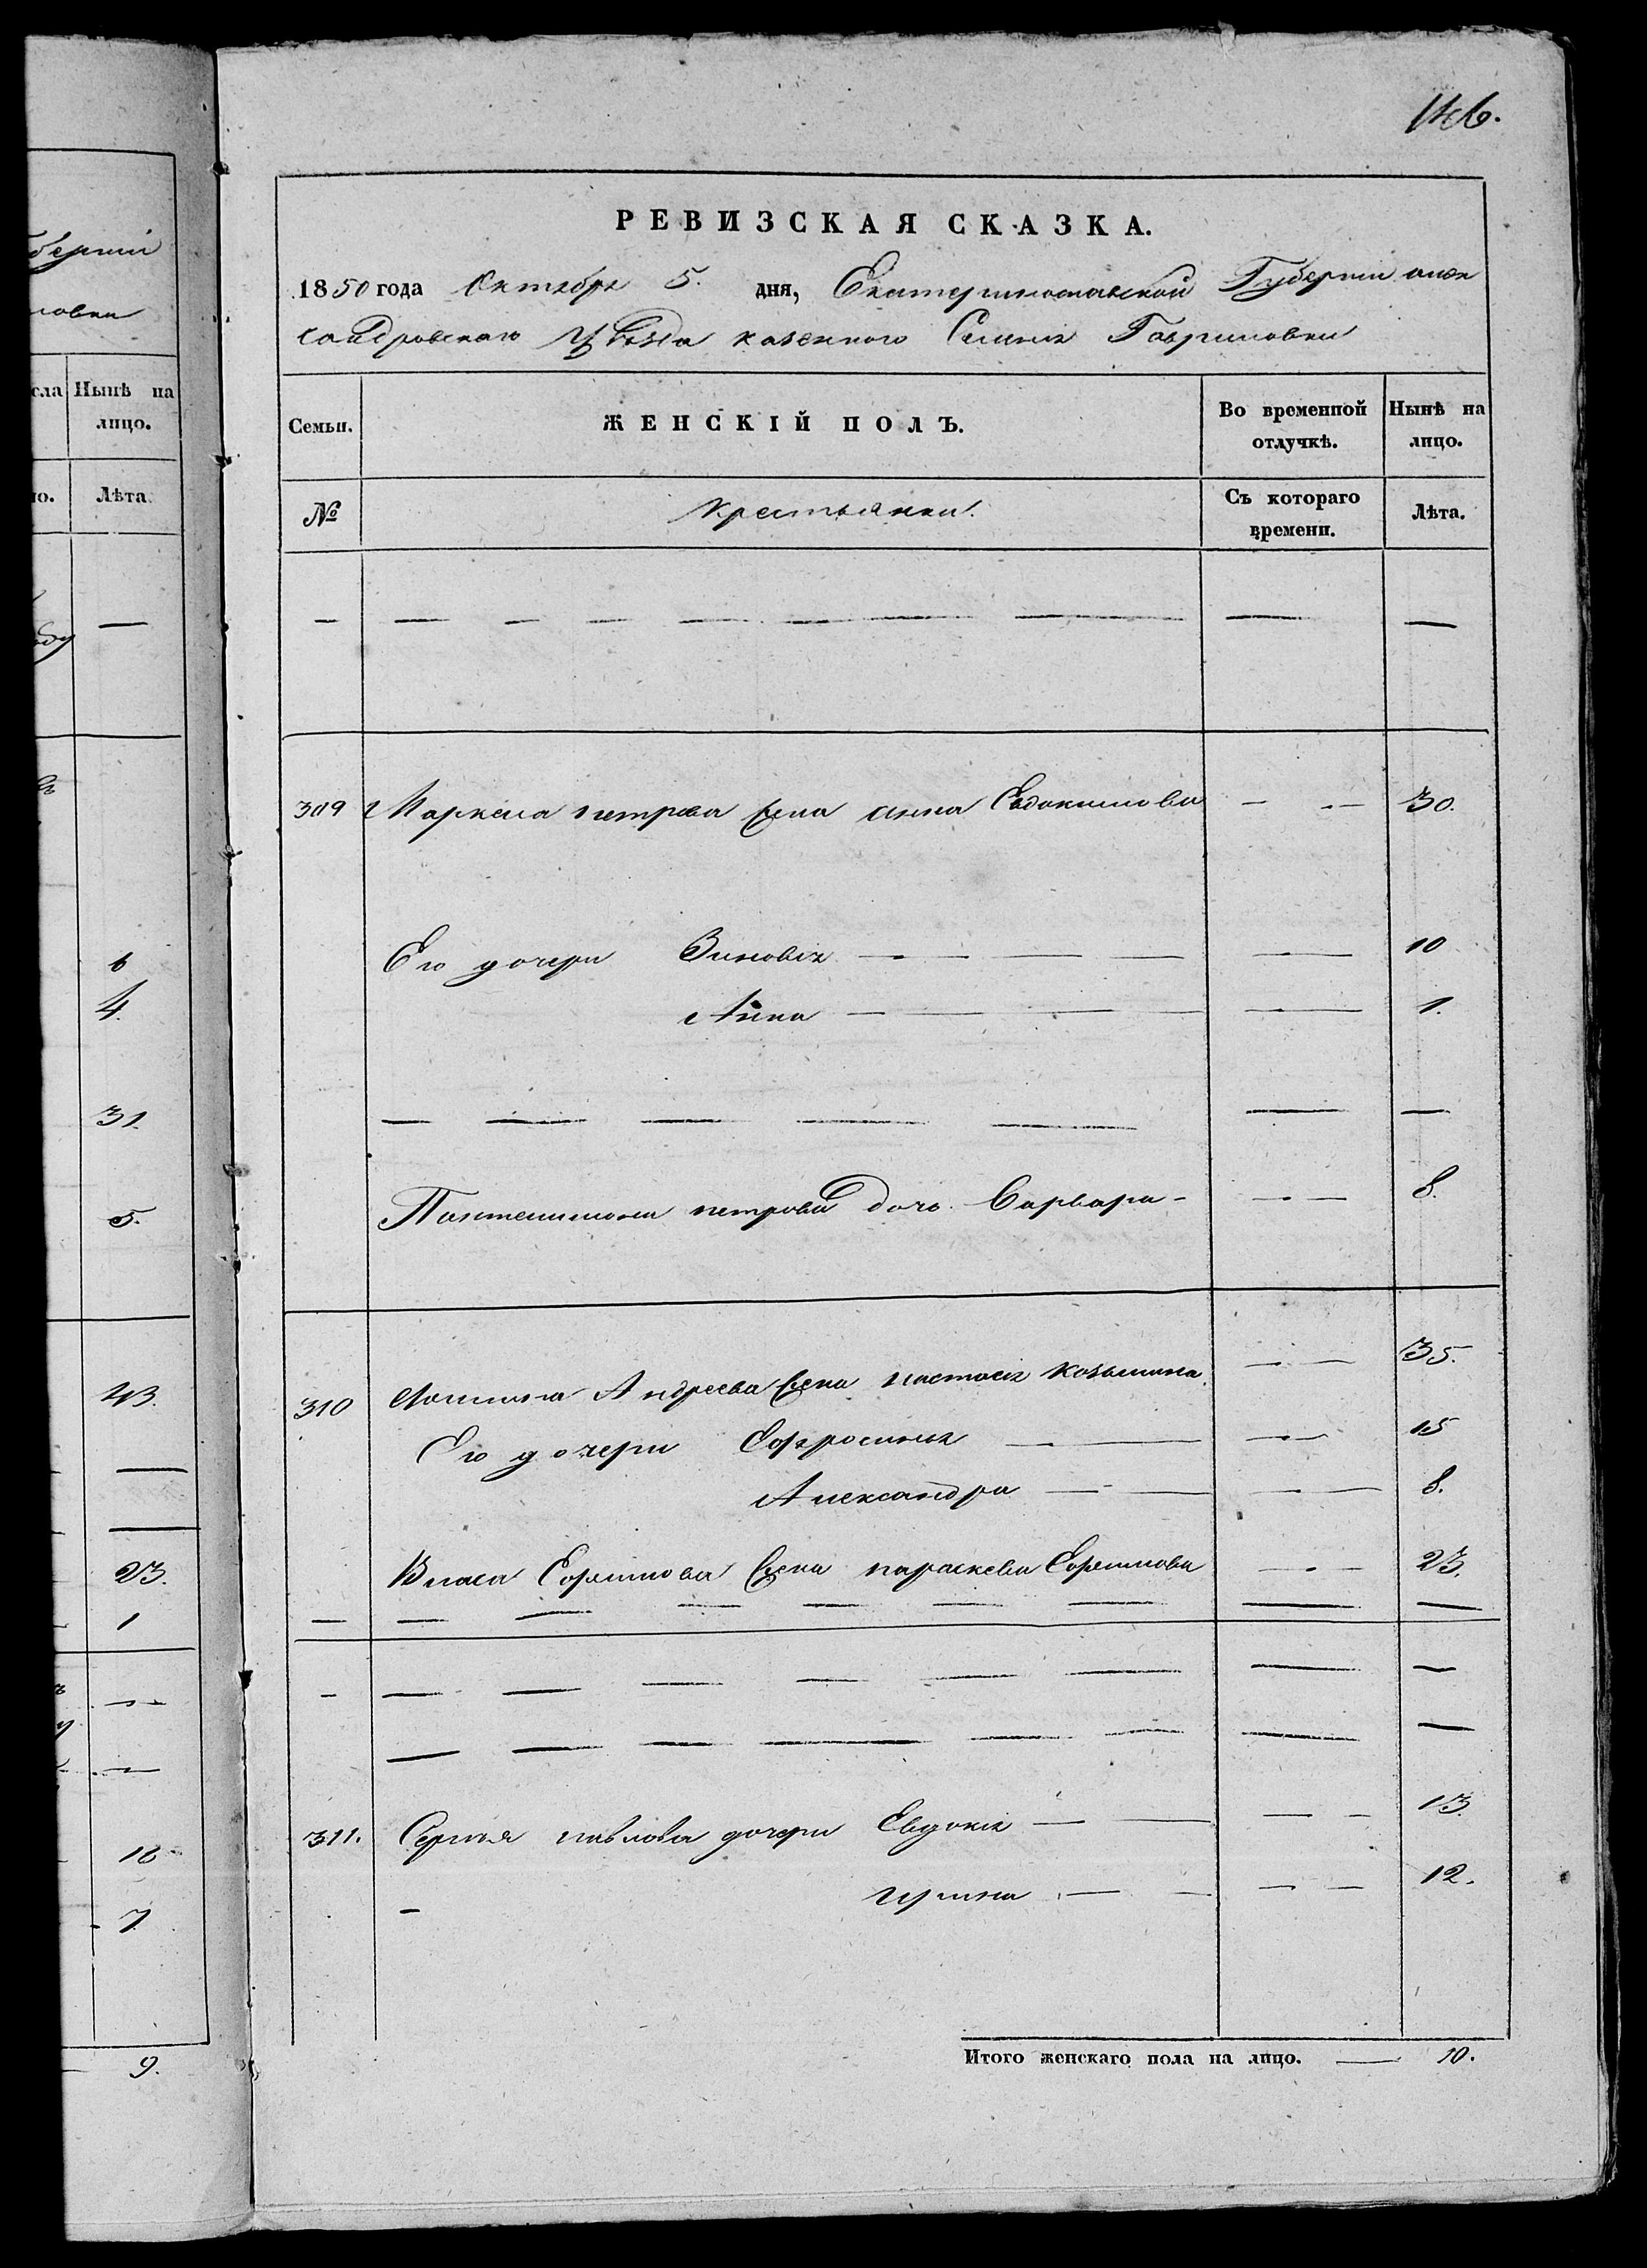 берніи
ловки
сла Нынѣ на
лицо.
но. Лѣта.
6
4.
31.
5.
43.
23.
1
16
7.
9.
146.
РЕВИЗСКАЯ СКАЗКА.
1850 года Октября 5. дня, Екатеринославской Губерніи алек
сандровскаго уѣзда казенного Селенія Гавриловки
Семьи. ЖЕНСКІЙ ПОЛЪ. Во временной отлучкѣ. Нынѣ на лицо.
№ Крестьянки. Съ котораго времени. Лѣта.
309 Маркела петрова жена анна Евдокимова 30.
Его дочери Зиновія 10
Анна 1.
Пантелимона петрова дочь Варвара 8.
310 Андреева жена настасія козьмина 35.
Его дочери Ефросинія 15
Александра 8.
Власа Ефимова жена параскева Ефремова 23.
311. Сергея павлова дочери Евдокія 13.
ирина 12.
Итого женскаго пола на лицо. 10.